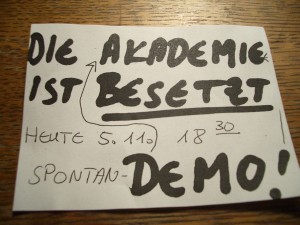 DIE AKADEMIE
IST BESETZT
HEUTE 5.11. 18 30
SPONTAN-DEMO!